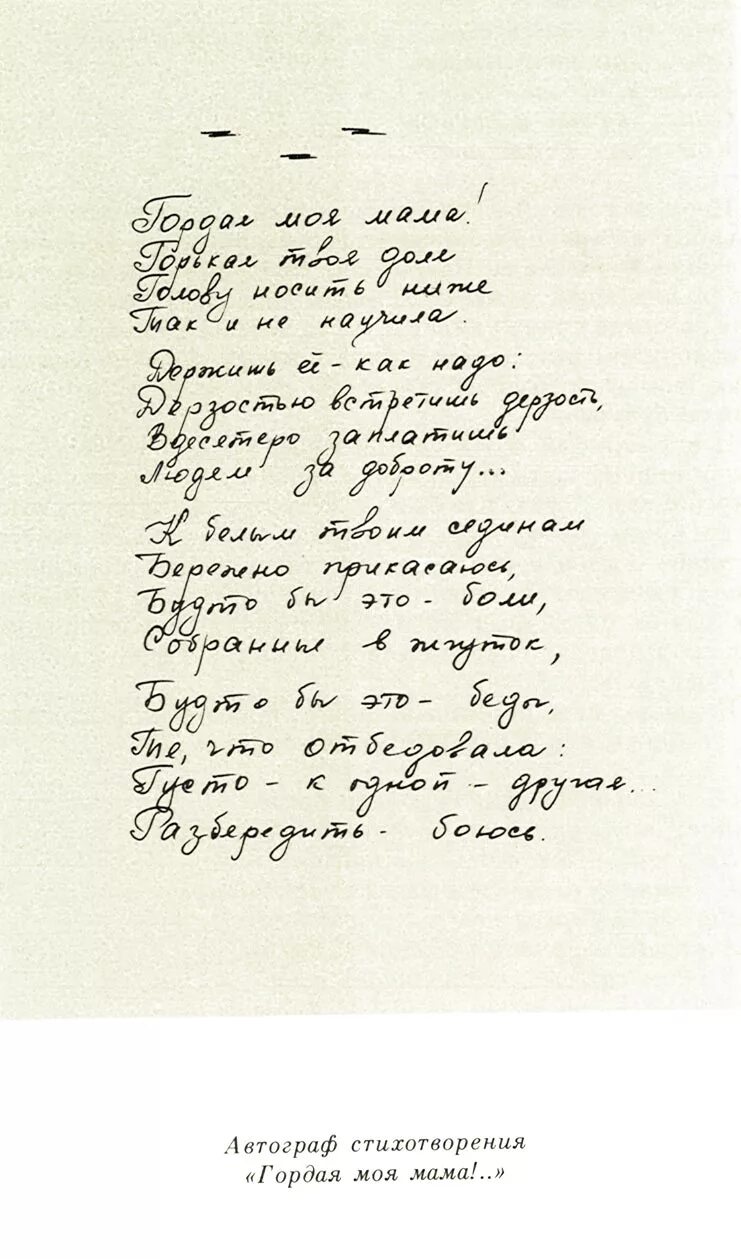 Гордая моя мама!
Горькая твоя доля
Голову носить ниже
Так и не научила.
Держишь её - как надо:
Дерзостью встретишь дерзость,
Вдесятеро заплатишь
Людям за доброту...
К белым твоим сединам
Бережно прикасаюсь,
Будто бы это - боли,
Собранные в жгуток,
Будто бы это - беды,
Те, что отбедовала:
Густо - к одной - другая...
Разбередить - боюсь.
Автограф стихотворения
«Гордая моя мама!..»